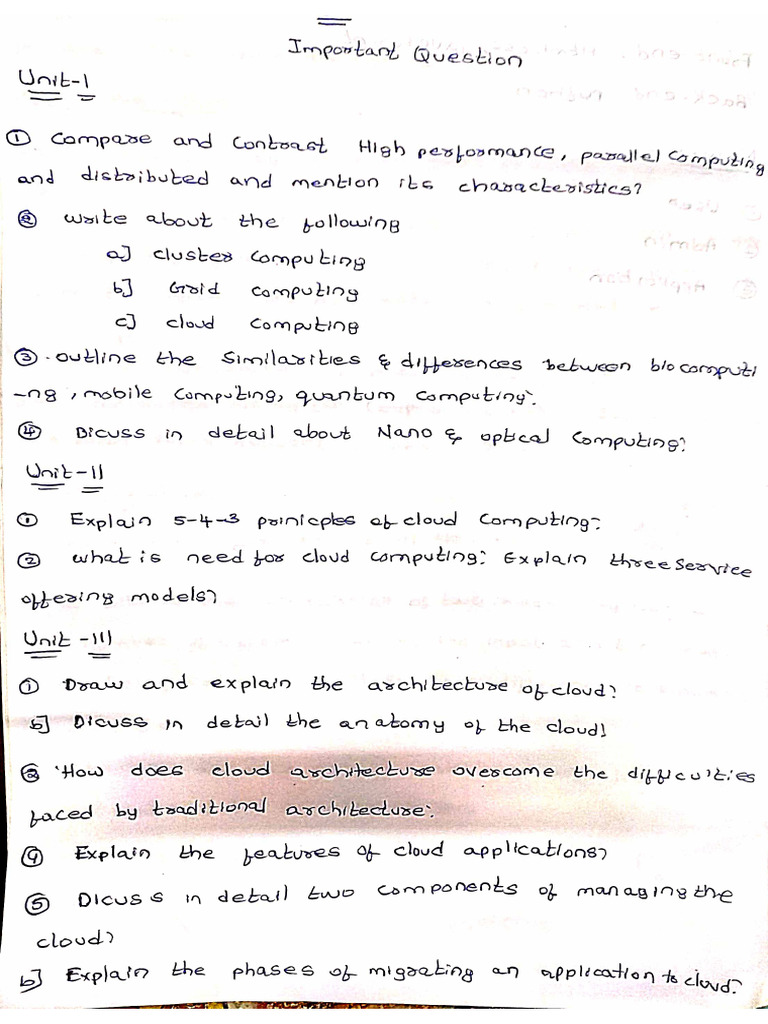 Important Question
Unit-I
① Compare and Contrast High performance, parallel Computing
and distributed and mention its characteristics?
② write about the following
a] cluster Computing
b] Grid Computing
c] cloud Computing
③ outline the Similarities & differences between biocomputi
-ng, mobile Computing, quantum Computing?
④ Dicuss in detail about Nano & optical Computing?
Unit-II
① Explain 5-4-3 prinicples of cloud Computing?
② what is need for cloud computing? Explain three Service
offering models?
Unit-III
① Draw and explain the architecture of cloud?
b] Dicuss in detail the anatomy of the cloud?
③ How does cloud architecture overcome the difficulties
faced by traditional architecture?
④ Explain the features of cloud applications?
⑤ Dicuss in detail two components of managing the
cloud?
b] Explain the phases of migrating an application to cloud?